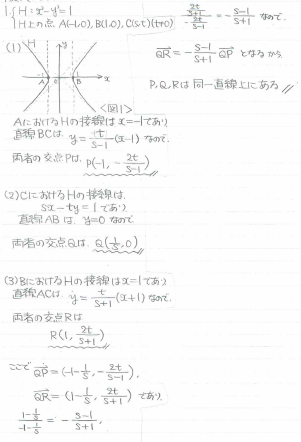 H: x²-y²=1
H上の点 A(-1,0), B(1,0), C(s,t) (t≠0)
(1)
H
y
A
O
B
x
<図1>
AにおけるHの接線は x=-1であり
直線BCは y = t/(s-1) (x-1) なので、
両者の交点Pは、P(-1, -2t/(s-1))
(2) CにおけるHの接線は、
sx-ty=1であり
直線ABは y=0なので
両者の交点Qは、Q(1/s, 0)
(3) BにおけるHの接線は x=1であり
直線ACは、y = t/(s+1) (x+1) なので、
両者の交点Rは
R(1, 2t/(s+1))
ここで QP = (-1-1/s, -2t/(s-1))
QR = (1-1/s, 2t/(s+1)) であり、
(1-1/s)/(-1-1/s) = -(s-1)/(s+1),
(2t/(s+1))/(-2t/(s-1)) = -(s-1)/(s+1) なので、
QR = -(s-1)/(s+1) QP となるから
P,Q,Rは同一直線上にある